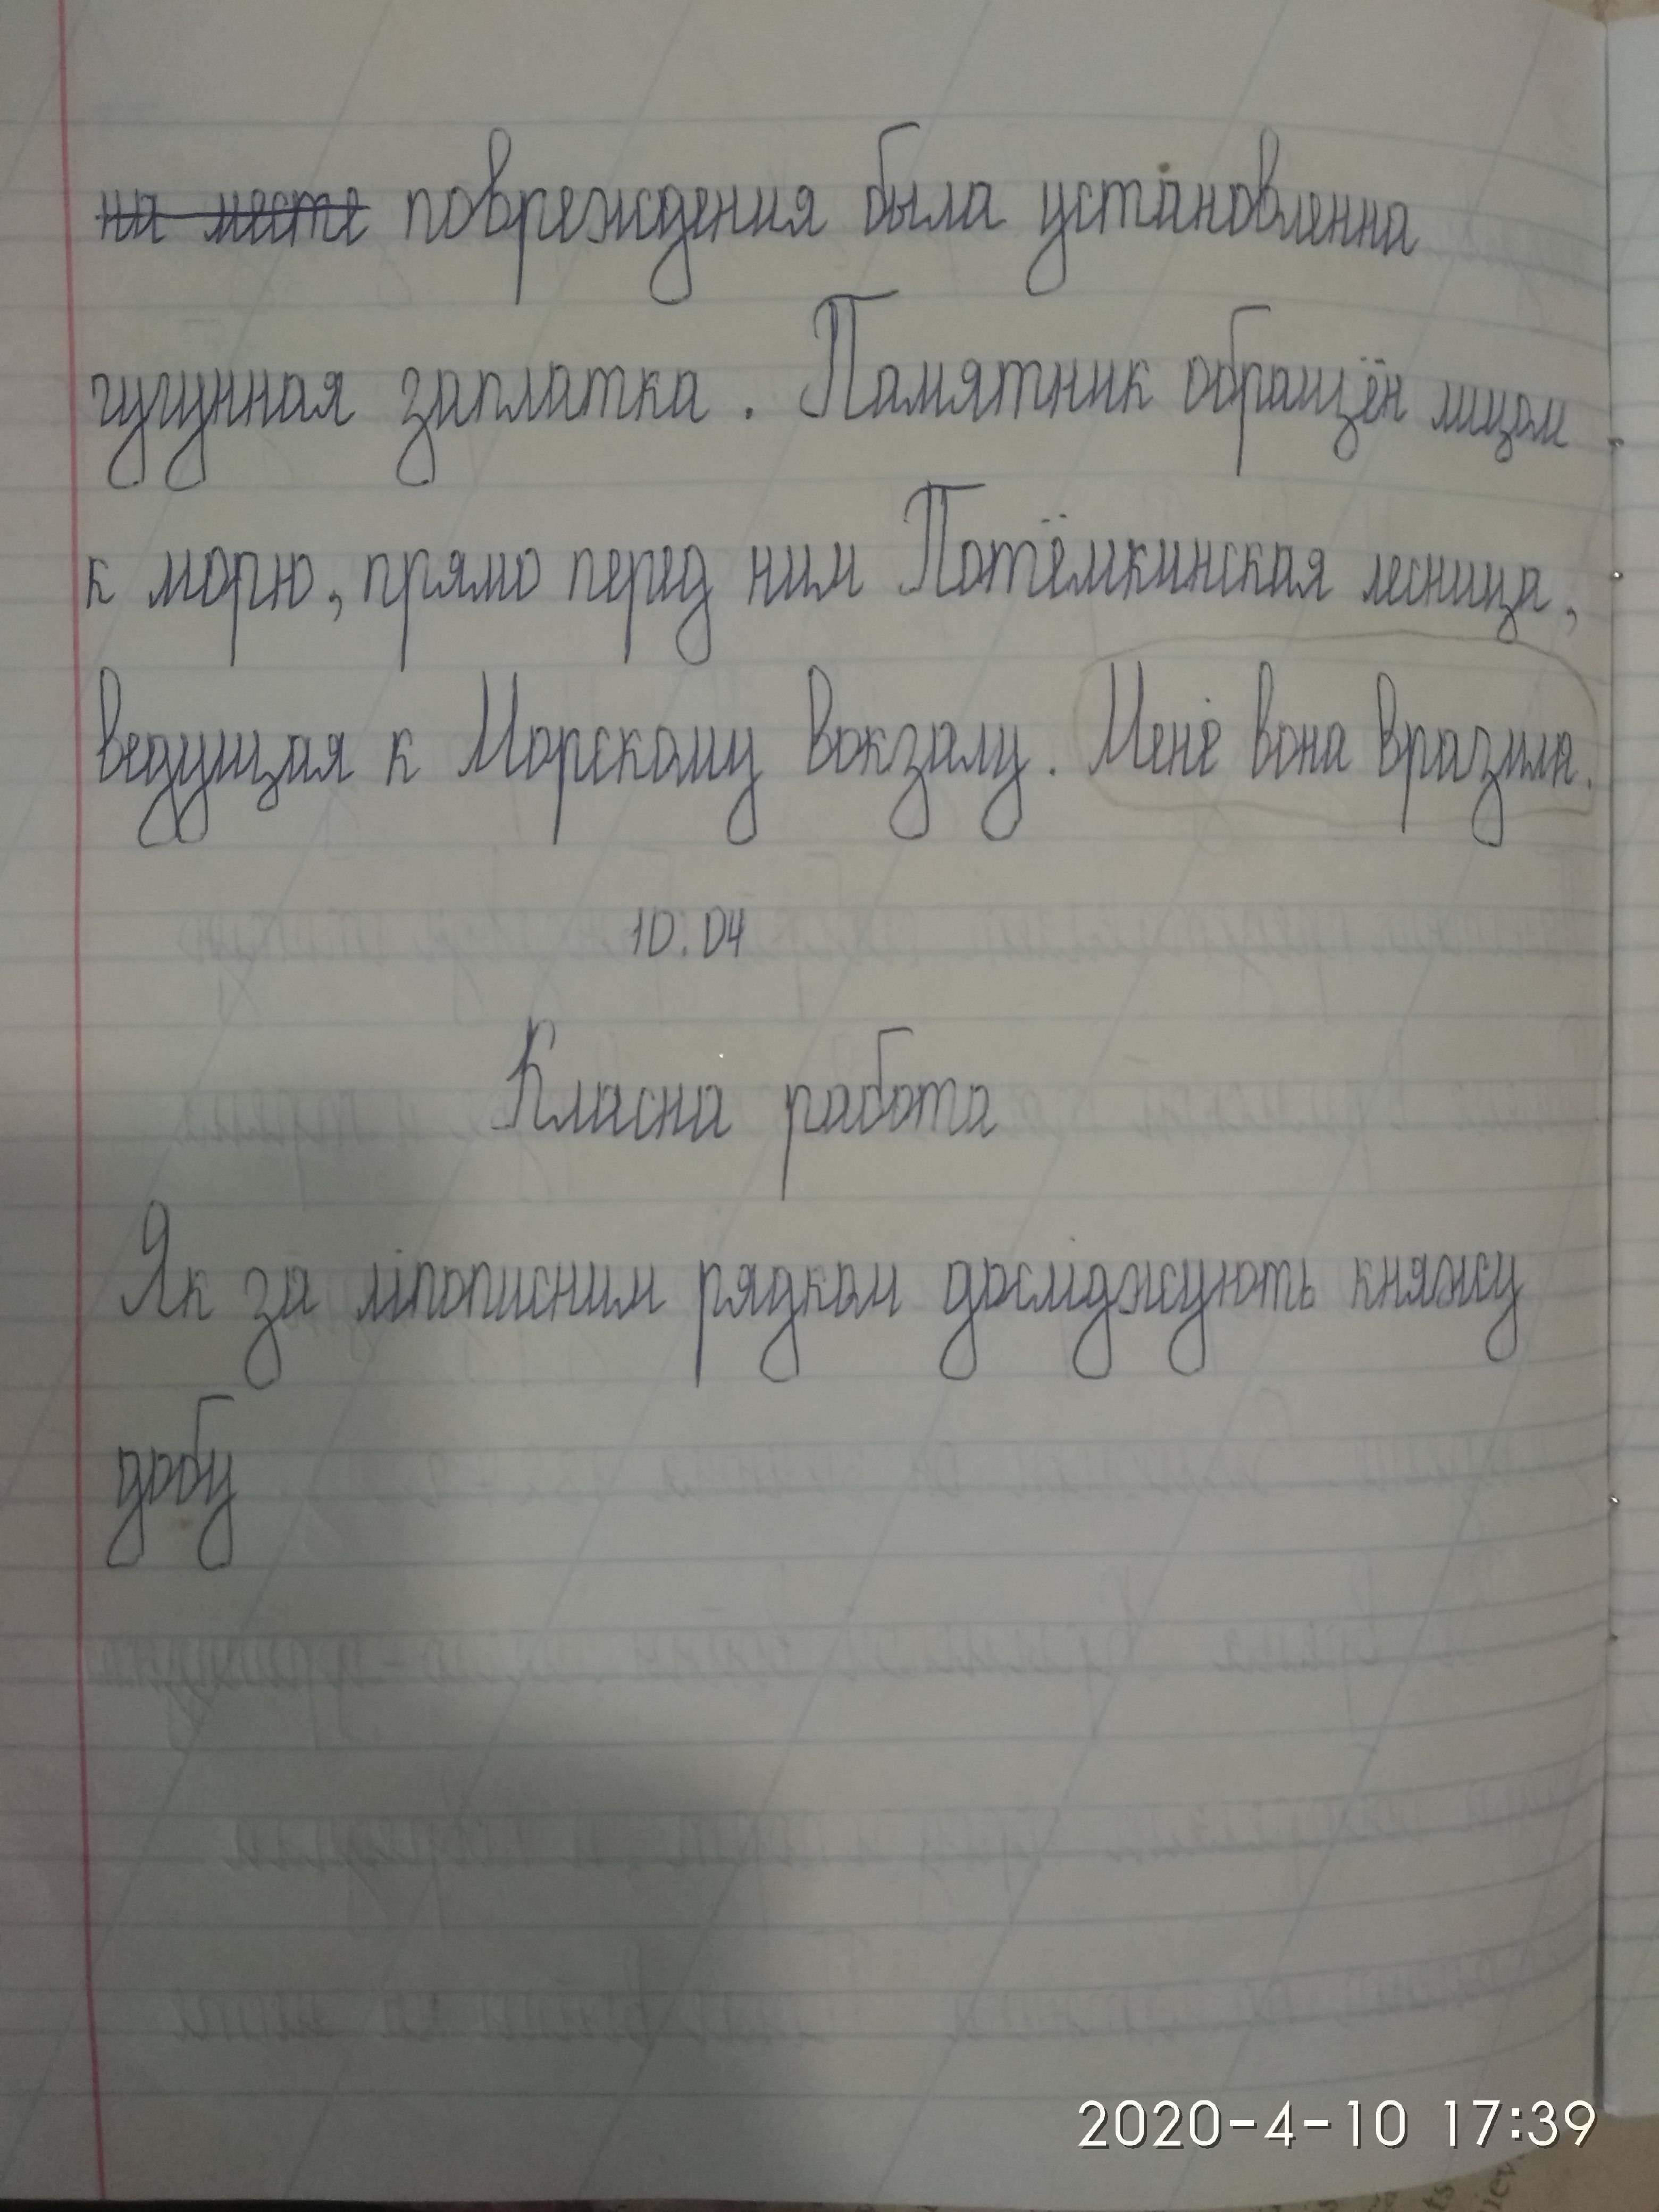 на месте повреждения была установленна
чугунная заплатка. Памятник обращён лицом
к морю, прямо перед ним Потёмкинская лесница,
ведущая к Морскому вокзалу. Мене вона вразила.
10.04
Класна работа
Як за літописним рядком досліджують княжу
добу
2020-4-10 17:39